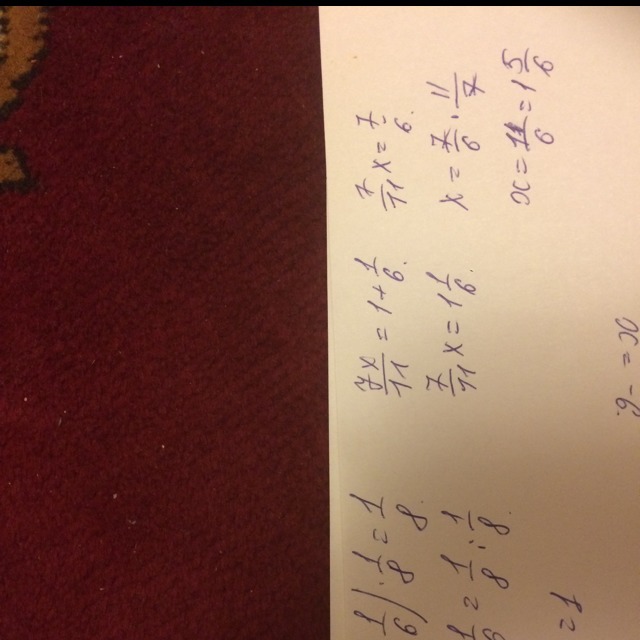 1/6) · 1/8 = 1/8.
1/6 = 1/8 : 1/8.
= 1
7x/11 = 1 + 1/6.
7/11 x = 1 1/6.
7/11 x = 7/6.
x = 7/6 · 11/7
x = 11/6 = 1 5/6
= x